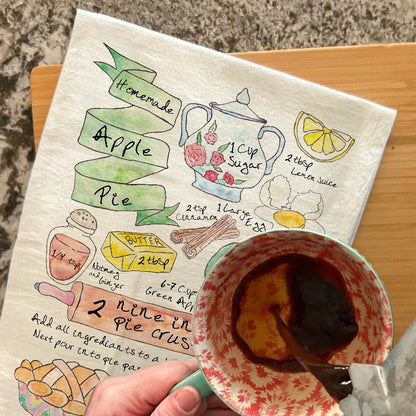 Homemade
Apple
Pie
1 Cup
Sugar
2 tbsp
Lemon Juice
2 tsp
Cinnamon
1 Large
Egg
1/4 tsp
Nutmeg
and Ginger
BUTTER
2 tbsp
6-7 Cup
Green
2 nine in
pie crus
Add all ingredients to a
Next pour into pie